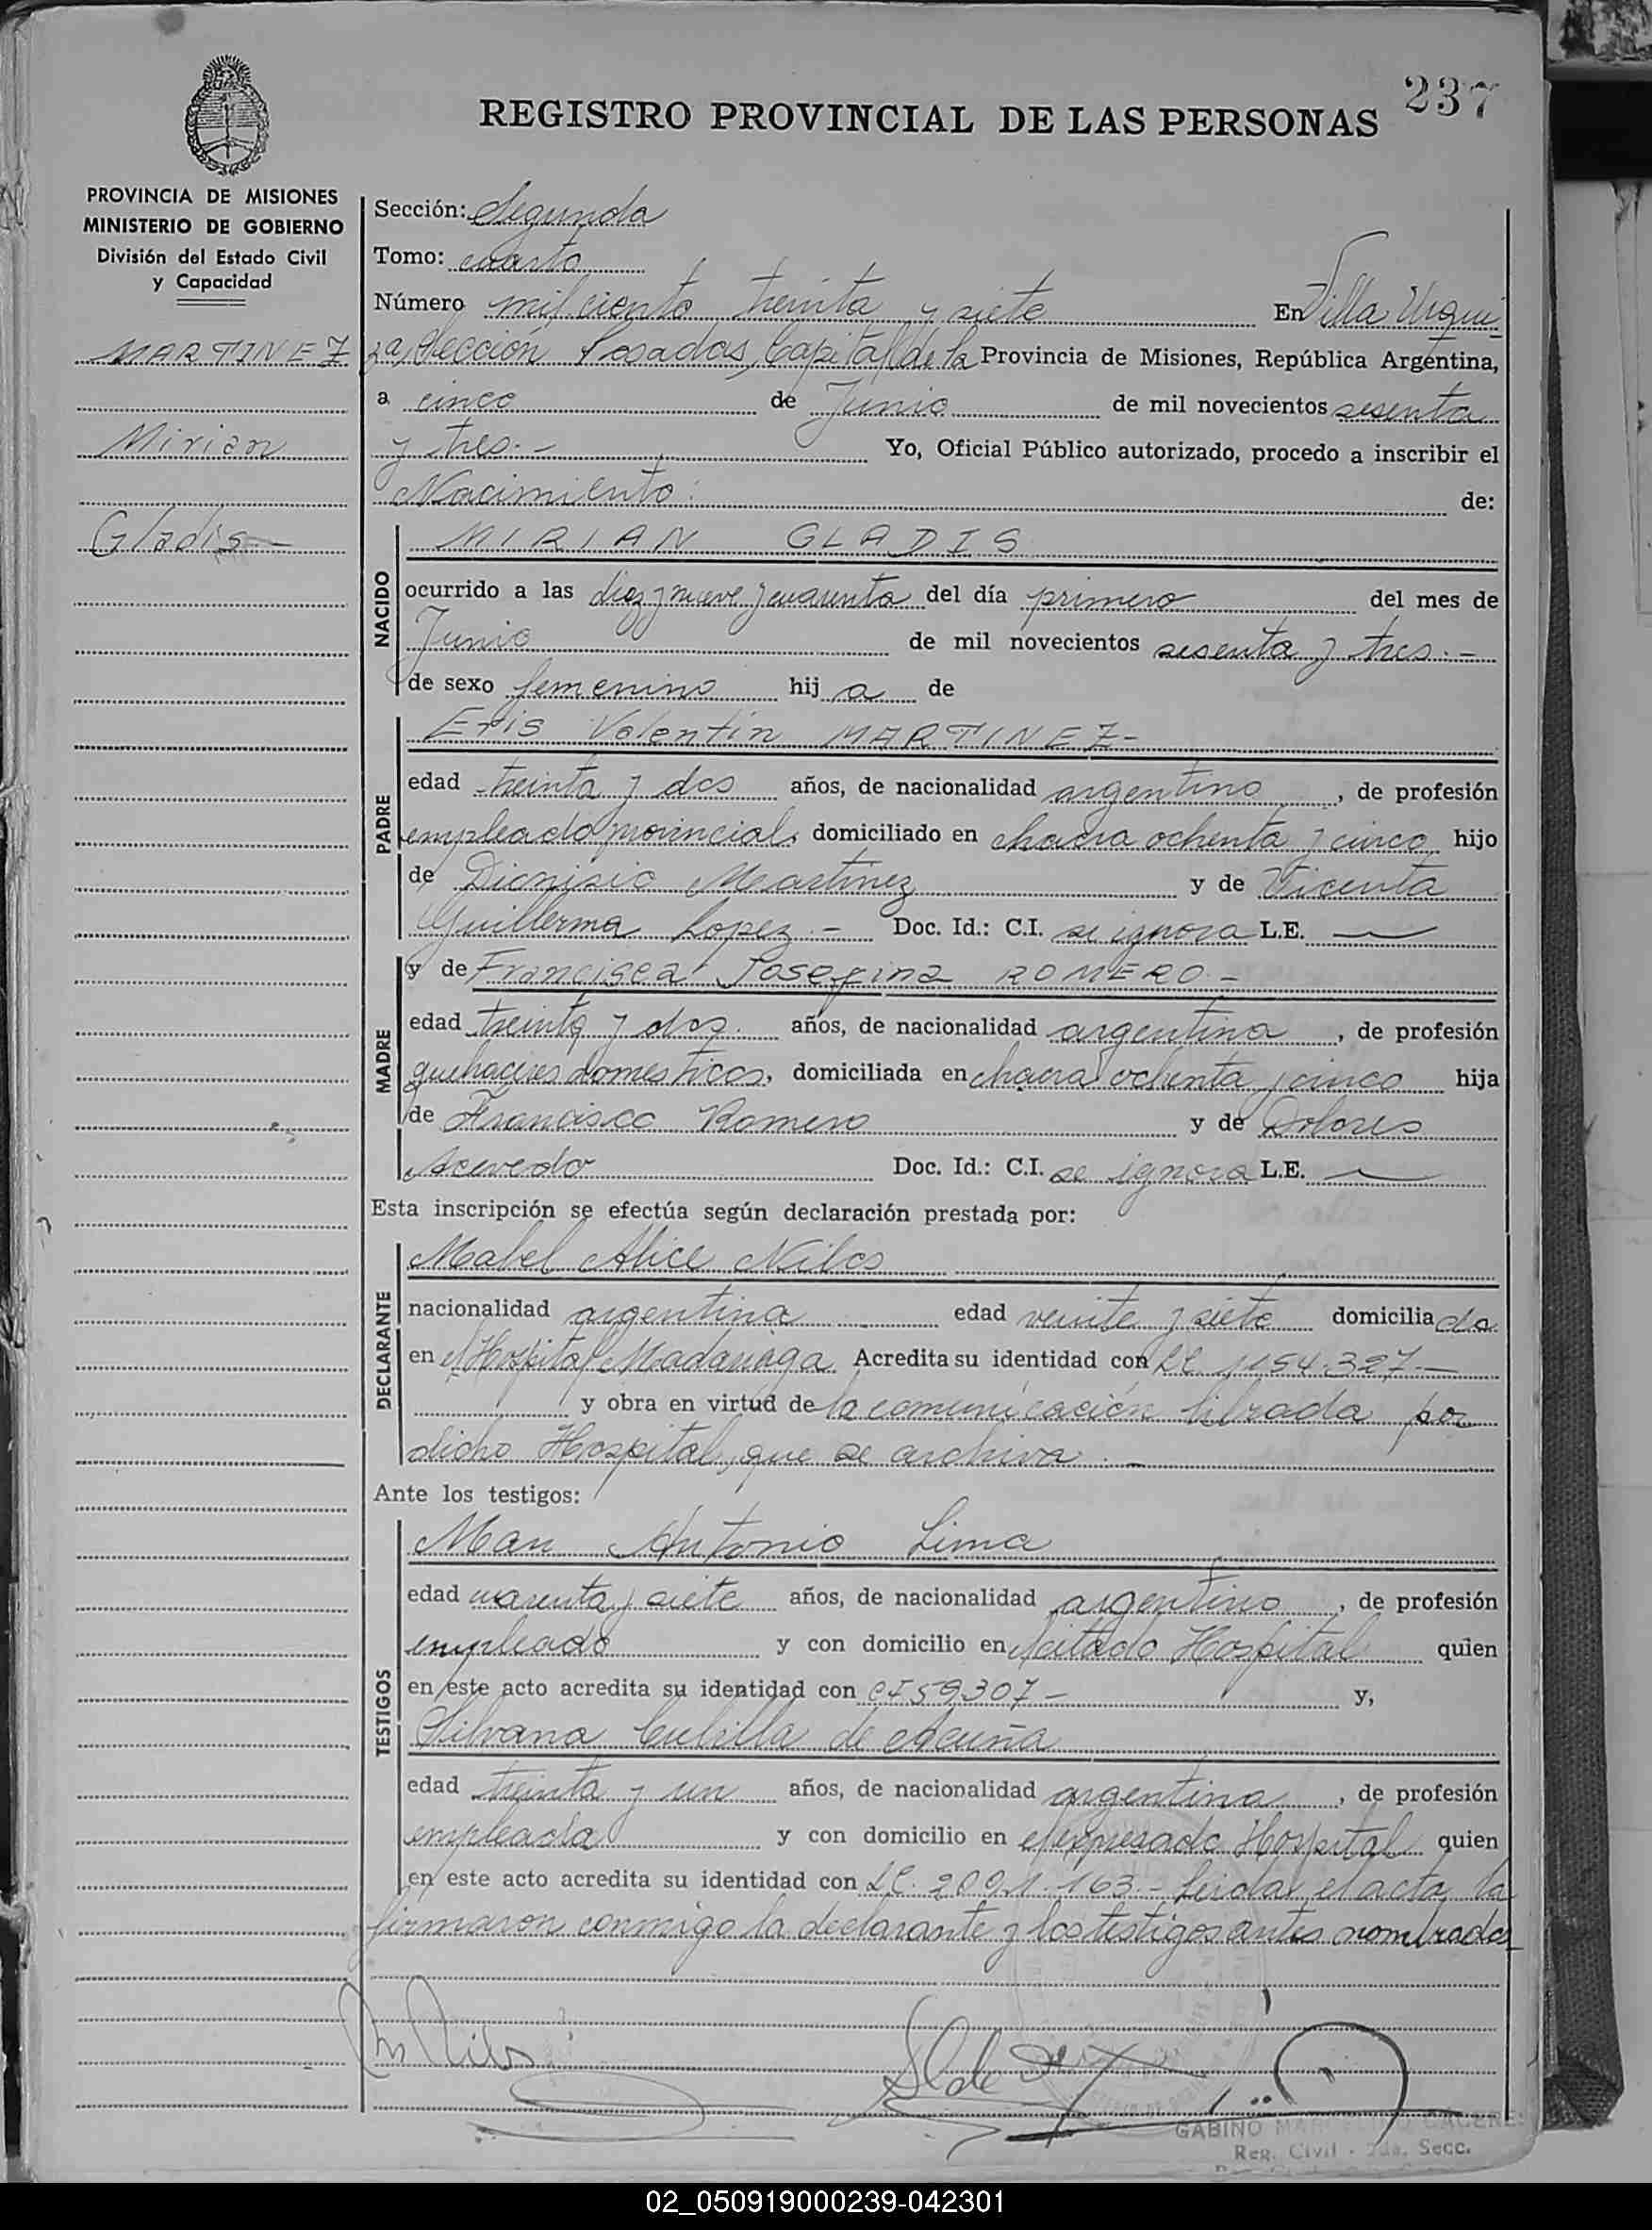 237
REGISTRO PROVINCIAL DE LAS PERSONAS
PROVINCIA DE MISIONES
MINISTERIO DE GOBIERNO
División del Estado Civil
y Capacidad
MARTINEZ
Mirian
Gladis
Sección: Segunda
Tomo: cuarto
Número mil ciento treinta y siete En Villa Urqui
za, Sección Posadas, Capital de la Provincia de Misiones, República Argentina,
a cinco de Junio de mil novecientos sesenta
y tres.- Yo, Oficial Público autorizado, procedo a inscribir el
Nacimiento de:
NACIDO
MIRIAN GLADIS
ocurrido a las diez y nueve y cuarenta del día primero del mes de
Junio de mil novecientos sesenta y tres.-
de sexo femenino hij a de
PADRE
Eris Valentín MARTINEZ-
edad treinta y dos años, de nacionalidad argentino, de profesión
empleado provincial, domiciliado en chacra ochenta y cinco hijo
de Dionisio Martinez y de Vicenta
Guillerma Lopez.- Doc. Id.: C.I. se ignora L.E. —
MADRE
y de Francisca Josefina ROMERO.-
edad treinta y dos. años, de nacionalidad argentina, de profesión
quehaceres domesticos, domiciliada en chacra ochenta y cinco hija
de Francisco Romero y de Dolores
Acevedo Doc. Id.: C.I. se ignora L.E. —
Esta inscripción se efectúa según declaración prestada por:
DECLARANTE
Mabel Alice Nilos
nacionalidad argentina edad veinte y siete domicilia da
en el Hospital Madariaga Acredita su identidad con LC 1154.327.-
y obra en virtud de la comunicación librada por
dicho Hospital, que se archiva.-
Ante los testigos:
TESTIGOS
Antonio Lima
edad cuarenta y siete años, de nacionalidad argentino, de profesión
empleado y con domicilio en el citado Hospital quien
en este acto acredita su identidad con CI 59307- y,
Silvana Cubilla de Acuña
edad treinta y un años, de nacionalidad argentina, de profesión
empleada y con domicilio en el expresado Hospital quien
en este acto acredita su identidad con LC. 2091.163.- Leida el acta, la
firmaron conmigo la declarante y los testigos antes nombrados
GABINO
Reg. Civil - 2da. Secc.
02_050919000239-042301